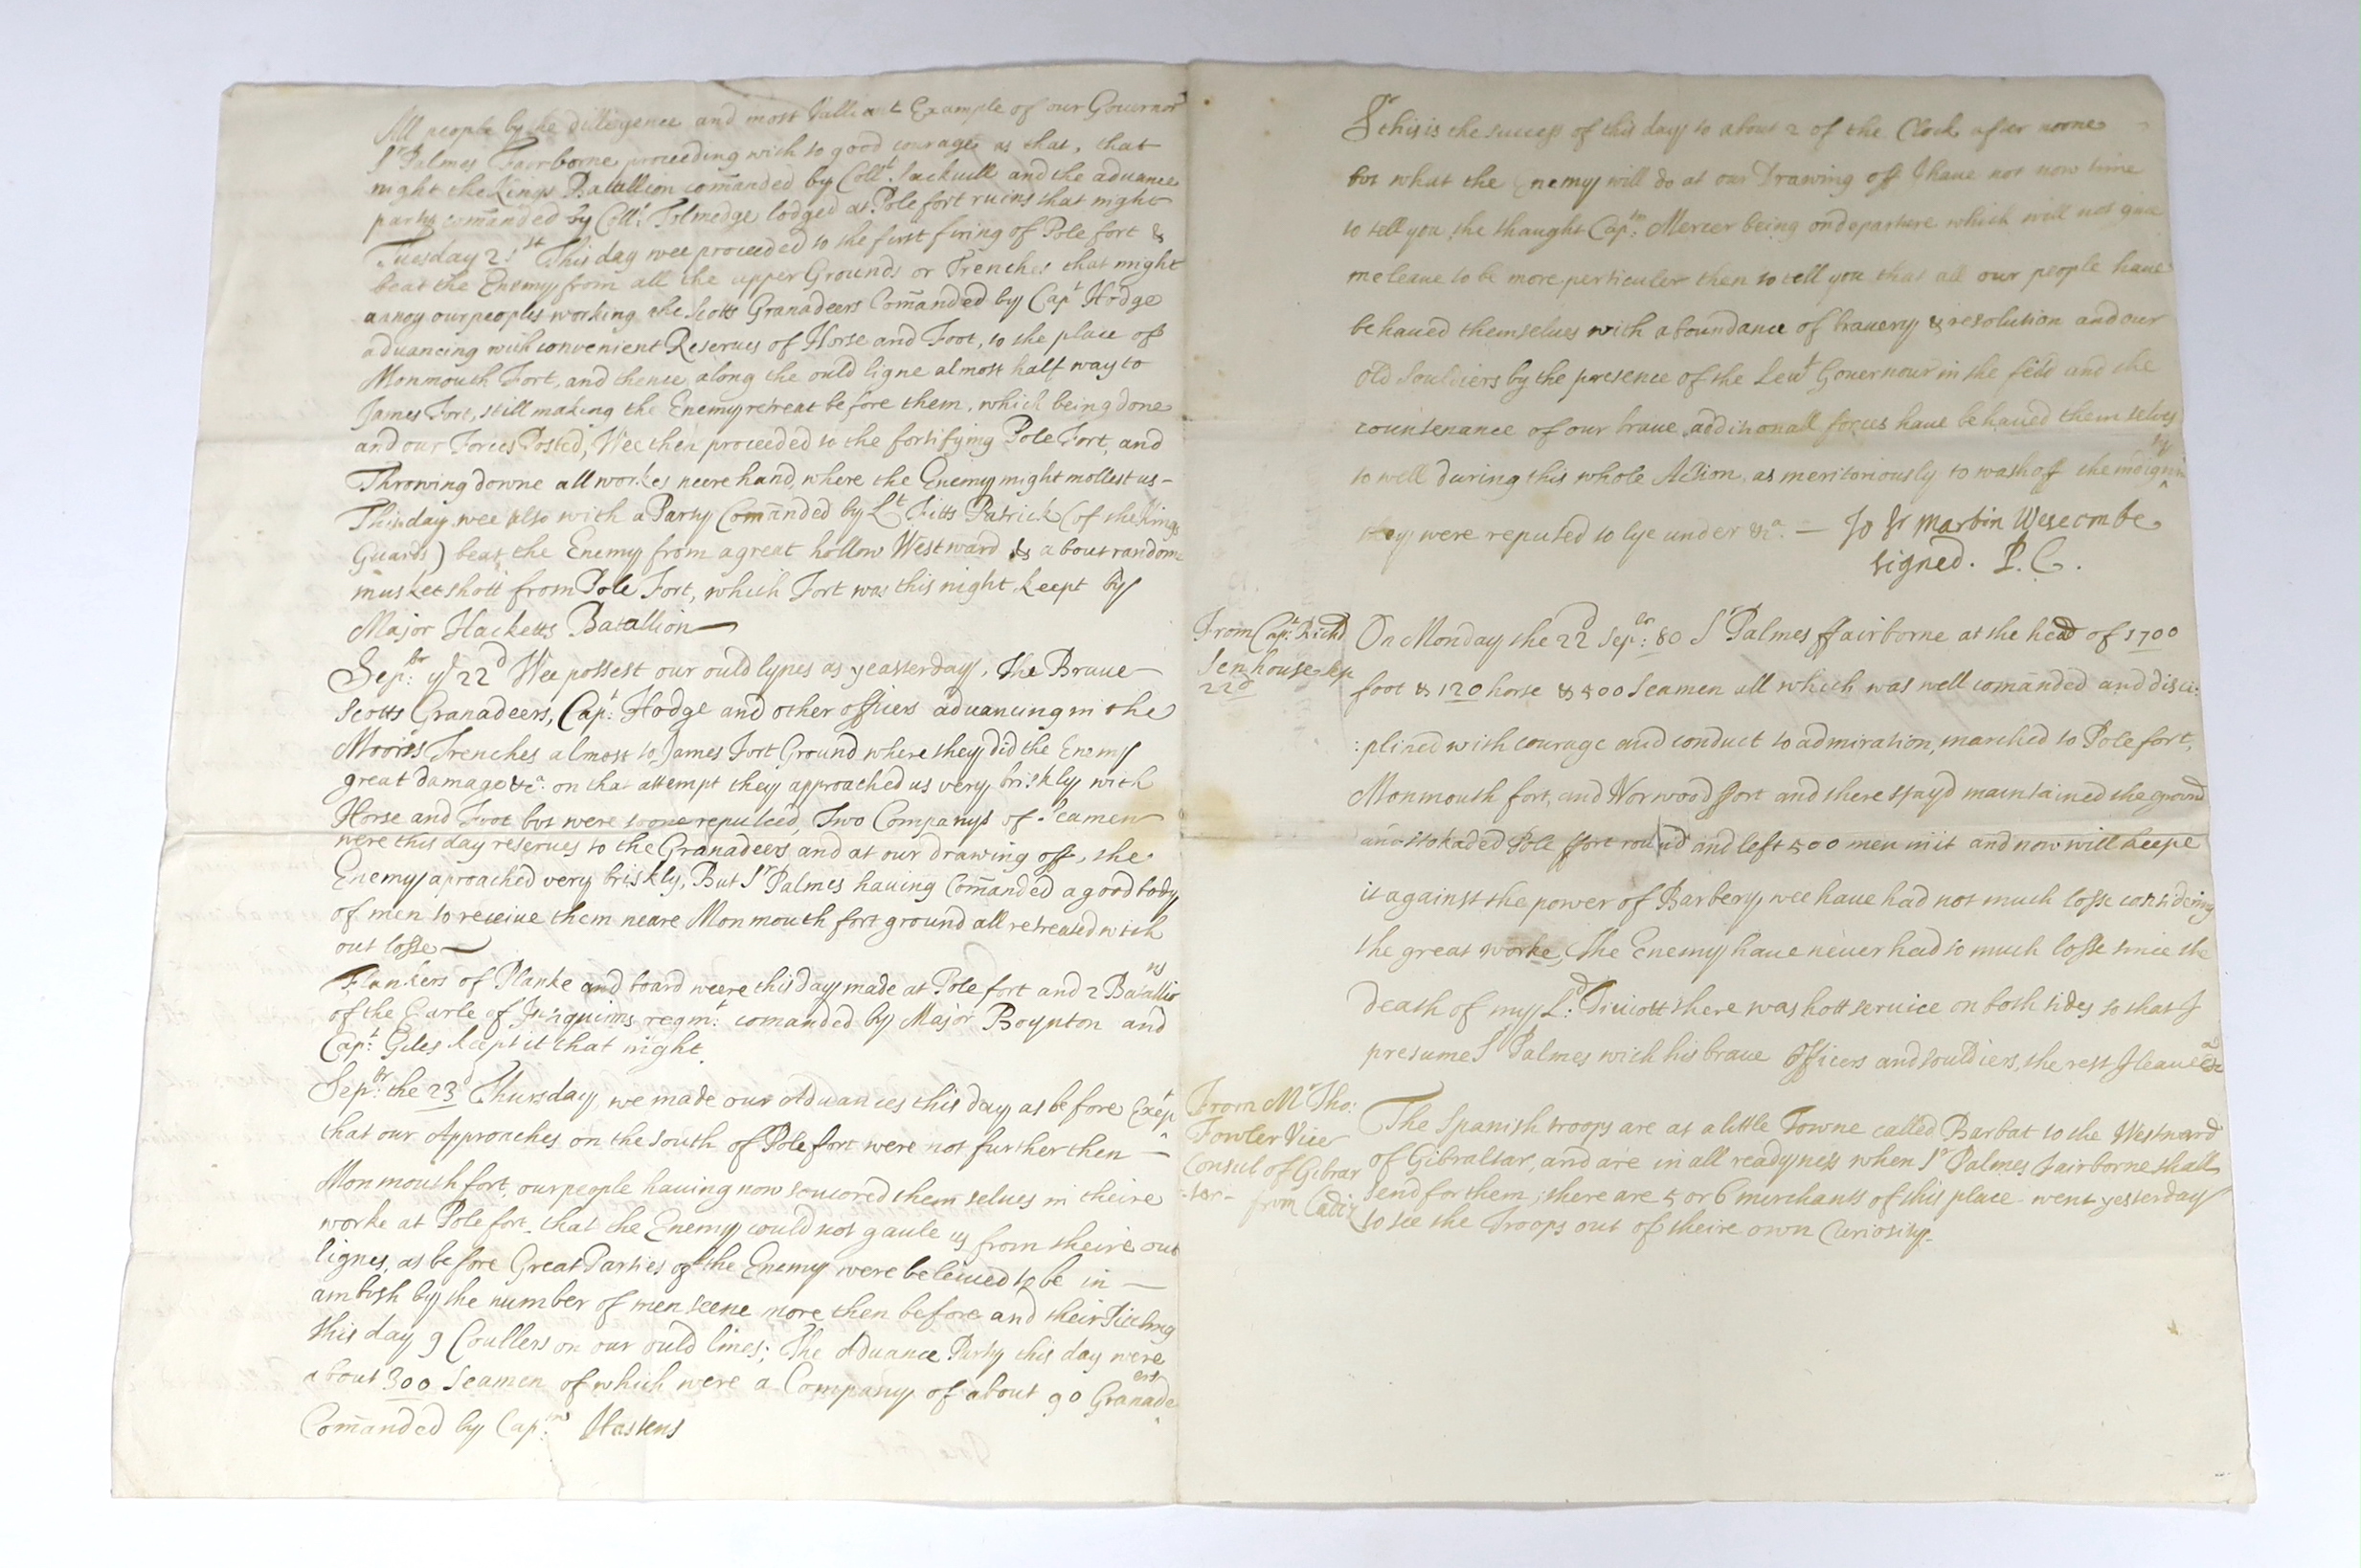 All people by the dilligence and most valliant Example of our Gouernor
Sr Palmes Fairborne proceeding with so good courage as that, that
night the Kings Batallion comanded by Collt. Sackuill and the aduance
party comanded by Collt. Tolmedge lodged at Pole fort ruins that night
Tuesday 21st This day wee proceeded to the first firing of Pole fort &
beat the Enemy from all the upper Grounds or Trenches that might
annoy our peoples working the Scotts Granadeers Comanded by Capt Hodge
aduancing with convenient Reserues of Horse and Foot, to the place of
Monmouth Fort, and thence along the ould ligne almost half way to
James Fort, still making the Enemy retreat before them, which being done
and our Forces Posted, Wee then proceeded to the fortifying Pole Fort, and
Throwing downe all workes neere hand, where the Enemy might mollest us -
This day wee also with a Party Comanded by Lt Fitts Patrick (of the Kings
Guards) beat the Enemy from a great hollow Westward & about random
musket shott from Pole Fort, which Fort was this night keept by
Major Hacketts Batallion
Sepbr: ye 22d Wee possest our ould lynes as yeasterday, the Braue
Scotts Granadeers, Capt: Hodge and other officers aduancing in the
Moores Trenches almost to James Fort Ground where they did the Enemy
great damage &ca: on that attempt they approached us very briskly with
Horse and Foot but were soone repulced, Two Companys of Seamen
were this day reserues to the Granadeers and at our drawing off, the
Enemy aproached very briskly, But Sr Palmes hauing Comanded a good body
of men to receiue them neare Monmouth fort ground all retreated with
out losse
Flankers of Planke and board weere this day made at Pole fort and 2 Batallions
of the Earle of Inchquinns regmt: comanded by Major Boynton and
Capt: Giles keept it that night.
Sepbr: the 23d Thursday, we made our Aduances this day as before Exept
that our Approaches on the south of Pole fort were not further then
Monmouth fort, our people hauing now soucored them selues in theire
worke at Pole fort, that the Enemy could not gaule us from theire out
lignes, as before Great Parties of the Enemy were beleiued to be in
ambush by the number of men seene more then before and their
this day 9 Coullers on our ould lines; The Aduance Party this day were
about 300 Seamen of which were a Company of about 90 Granadeers
Comanded by Captn: Hastens
Sr this is the success of this day to about 2 of the Clock after noone
but what the Enemy will do at our Drawing off I haue not now time
to tell you the thaught Captn: Mercer being on departure which will not giue
me leaue to be more perticuler then to tell you that all our people haue
behaued themselues with aboundance of brauery & resolution and our
old Souldiers by the presence of the Leut Gouernour in the feild and the
countenance of our braue additionall forces haue behaued themselues
so well during this whole Action, as meritoriously to wash off the indignity
they were reputed to lye under &ca. - To Sr Martin Wesecombe
signed. P. C.
From Capt: Richd
Senhouse Sep
22d
On Monday the 22d Sepbr: 80 Sr Palmes ffairborne at the head of 1700
foot & 120 horse & 500 Seamen all which was well comanded and disci:
:plined with courage and conduct to admiration, marched to Pole fort,
Monmouth fort, and Norwood ffort and there stayd maintained the ground
and stokaded Pole ffort round and left 500 men in it and now will keepe
it against the power of Barbery, wee haue had not much losse considering
the great worke, the Enemy haue neuer had so much losse since the
death of my Ld: Tiuiott there was hott seruice on both sides so that I
presume Sr Palmes with his braue officers and souldiers, the rest I leaue &ca
From Mr Tho:
Fowler Vice
Consul of Gibrar
:ter -
from Cadiz
The Spanish troops are at a little Towne called Barbat to the Westward
of Gibraltar, and are in all readyness when Sr Palmes Fairborne shall
send for them; there are 5 or 6 merchants of this place went yesterday
to see the Troops out of theire own Curiosity.